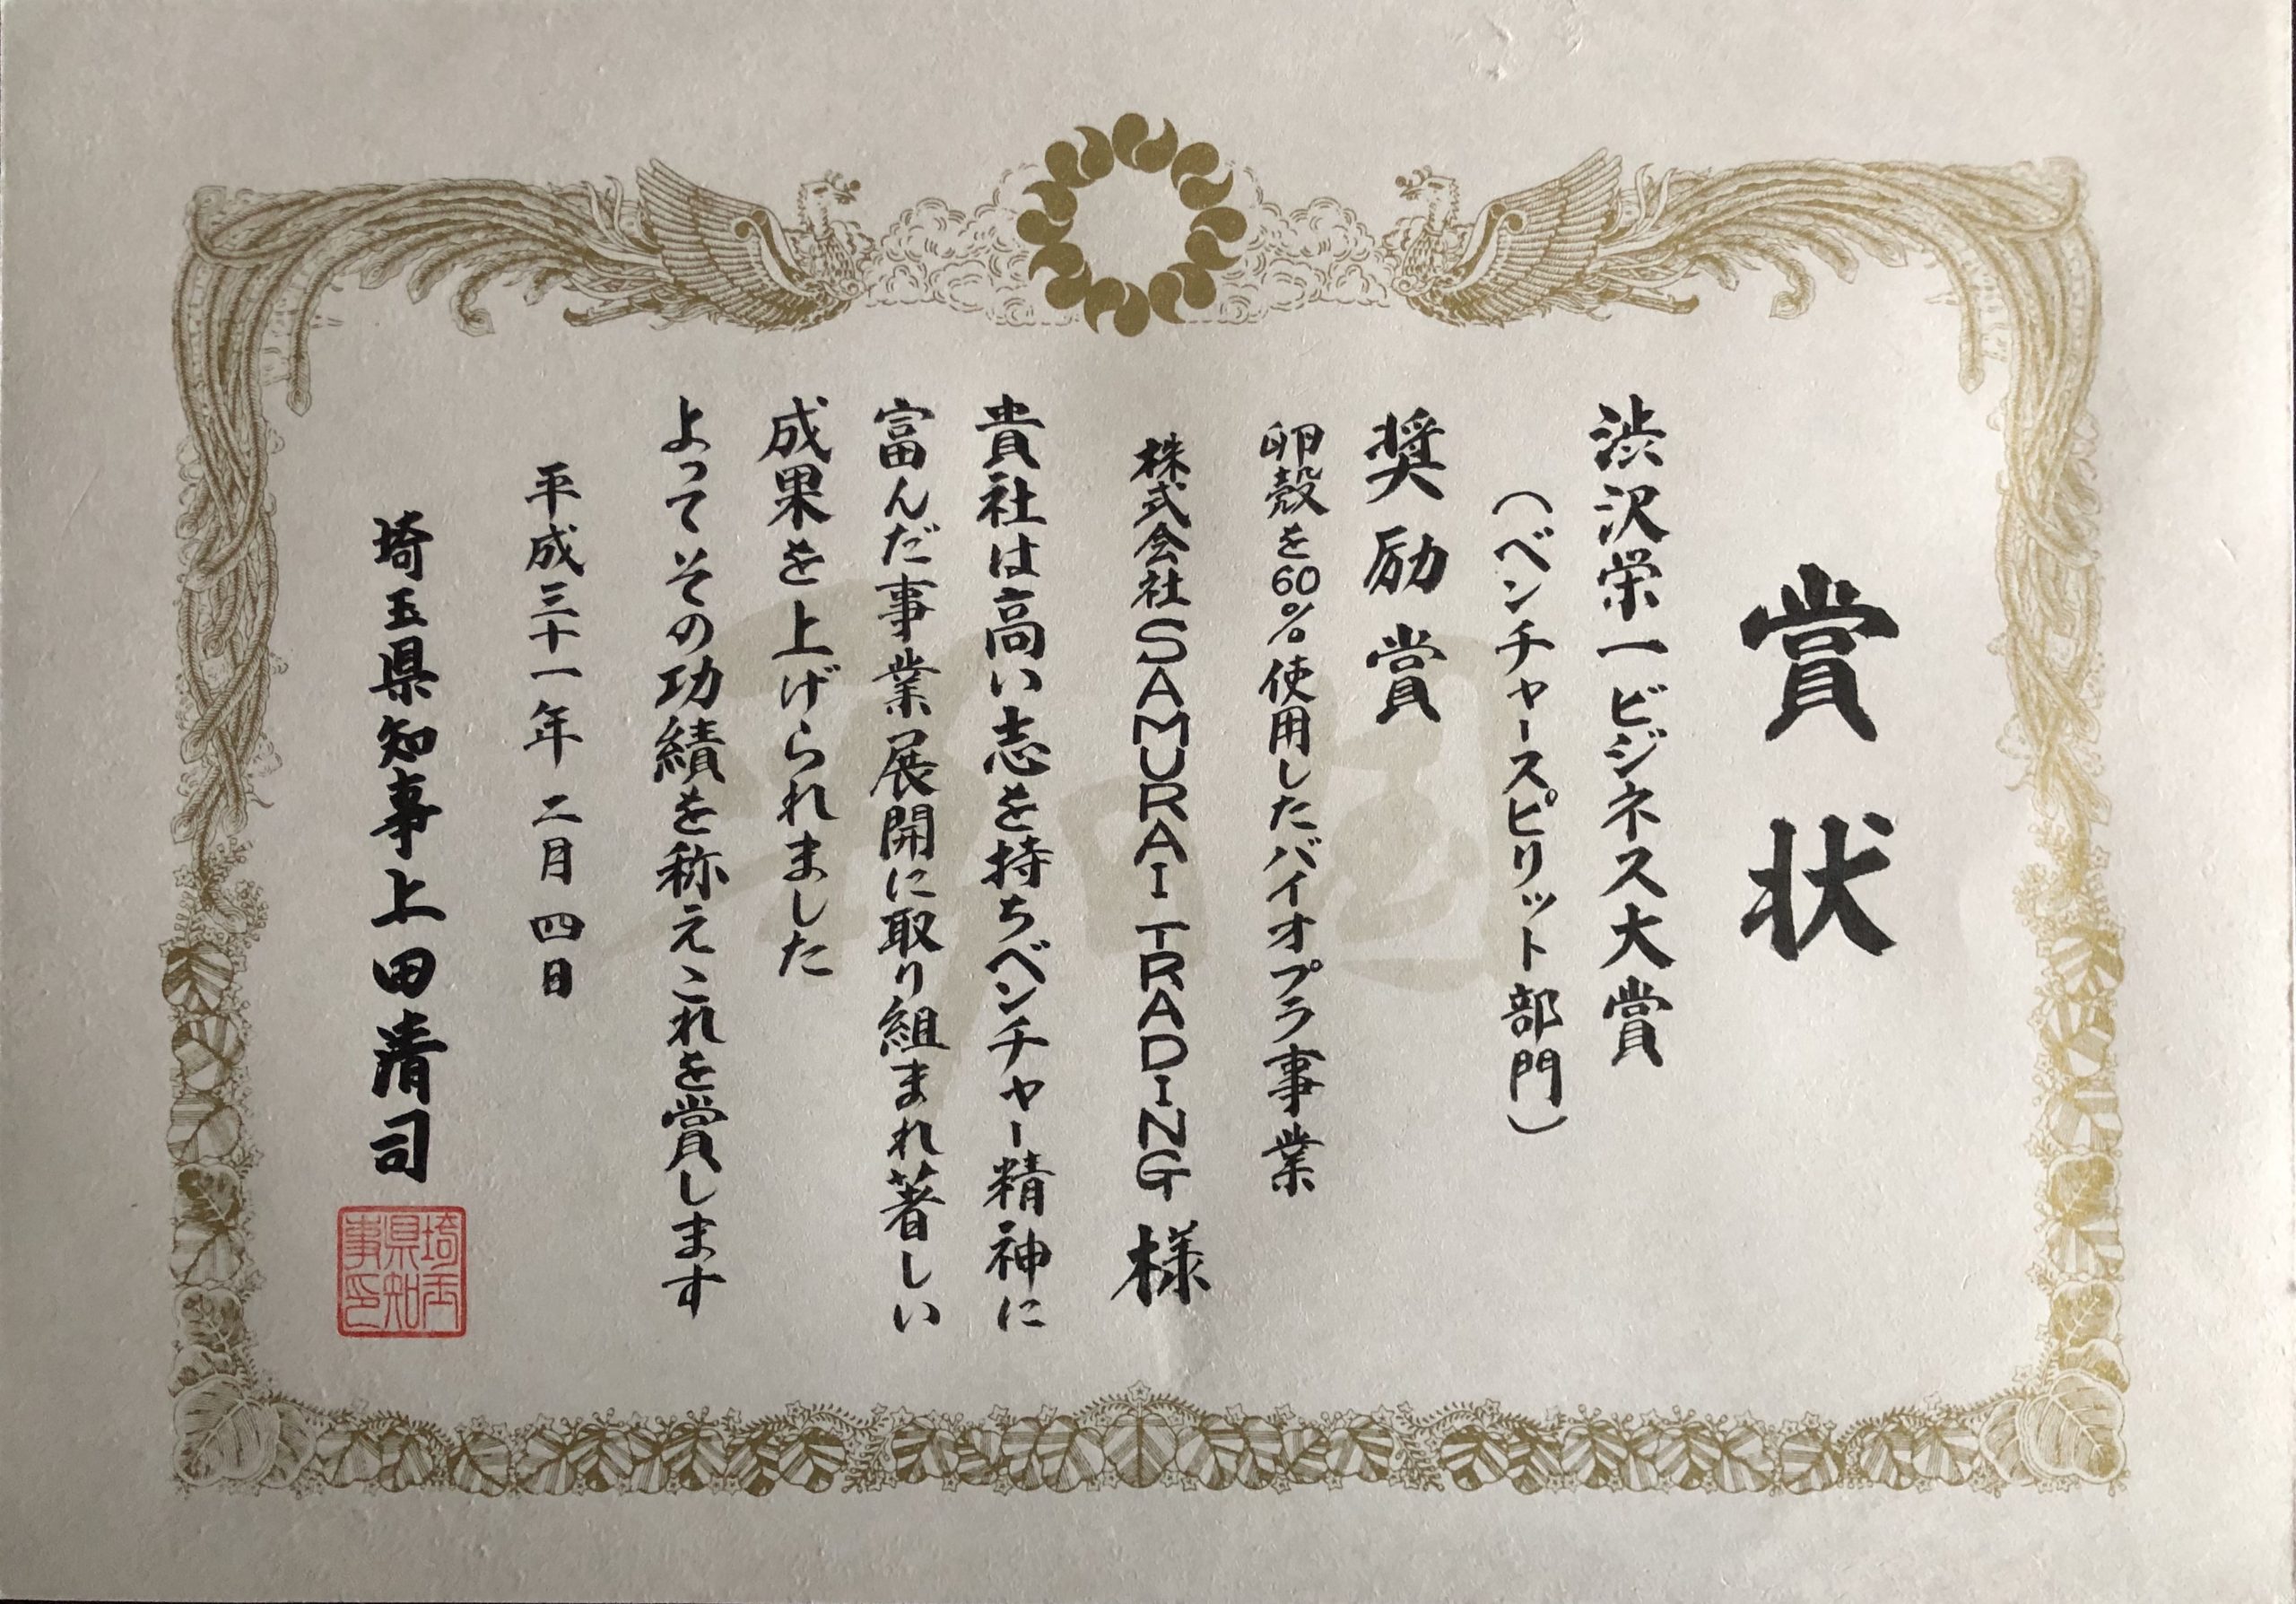 賞状
渋沢栄一ビジネス大賞
（ベンチャースピリット部門）
奨励賞
卵殻を60%使用したバイオプラ事業
株式会社SAMURAI TRADING様
貴社は高い志を持ちベンチャー精神に
富んだ事業展開に取り組まれ著しい
成果を上げられました
よってその功績を称えこれを賞します
平成三十一年二月四日
埼玉県知事上田清司
埼玉
県知
事印